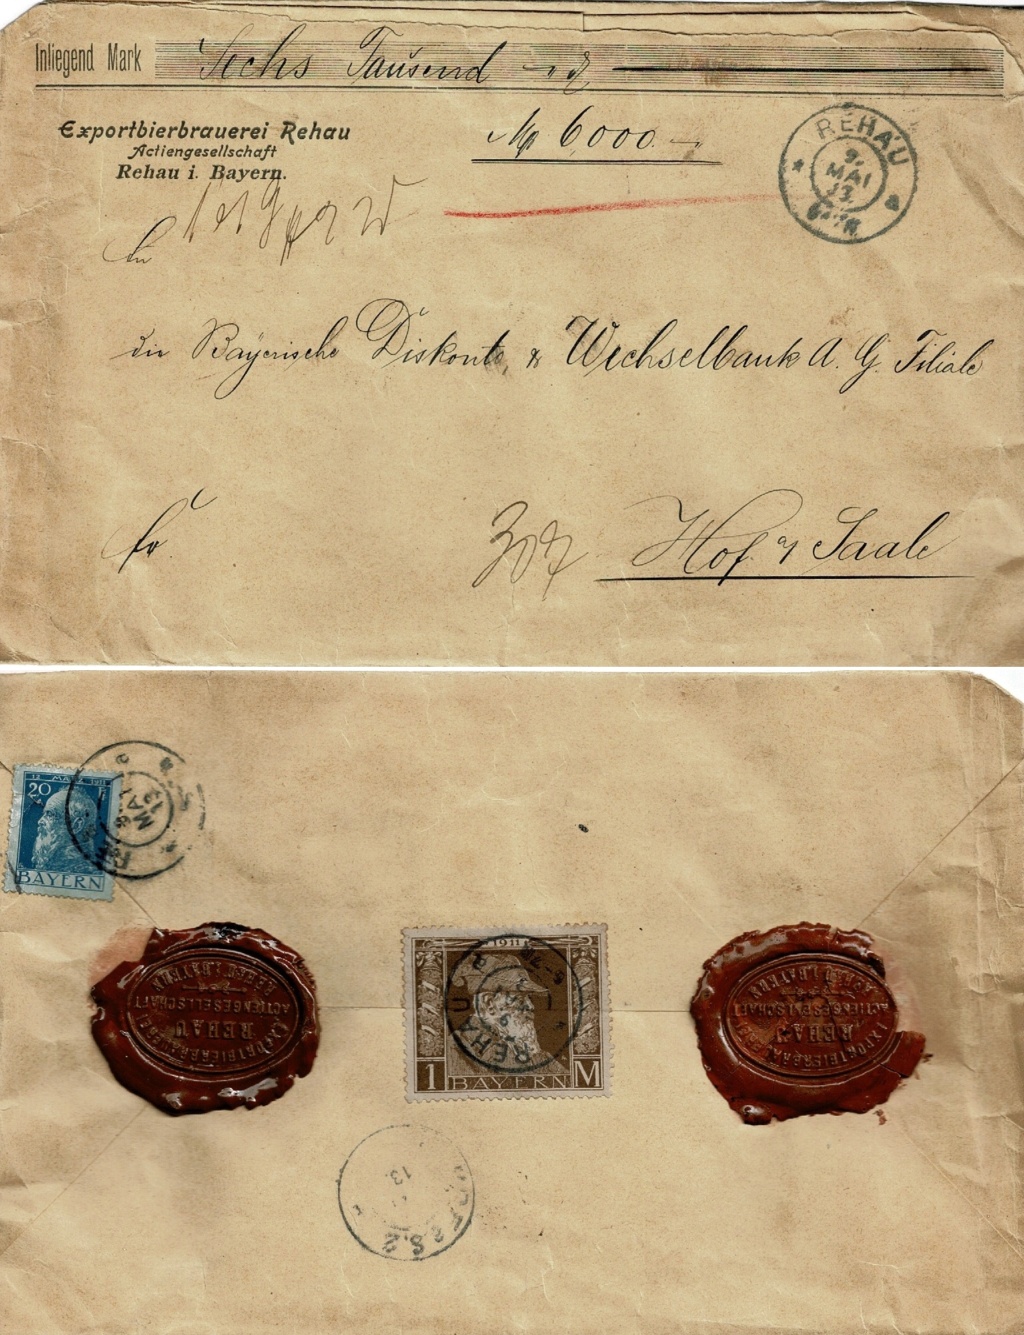 Inliegend Mark Sechs Tausend
Exportbierbrauerei Rehau
Actiengesellschaft
Rehau i. Bayern.
M 6,000.—
REHAU
9.
MAI
13.
An
die Bayerische Diskonto & Wechselbank A. G. Filiale
fr.
Hof a/ Saale
12 MÄRZ 1911
20 P
BAYERN
MAI
13
EXPORTBIERBRAUEREI
REHAU
ACTIENGESELLSCHAFT
REHAU I. BAYERN
1911
REHAU
1 BAYERN M
EXPORTBIERBRAUEREI
REHAU
ACTIENGESELLSCHAFT
REHAU I. BAYERN
HOF
13